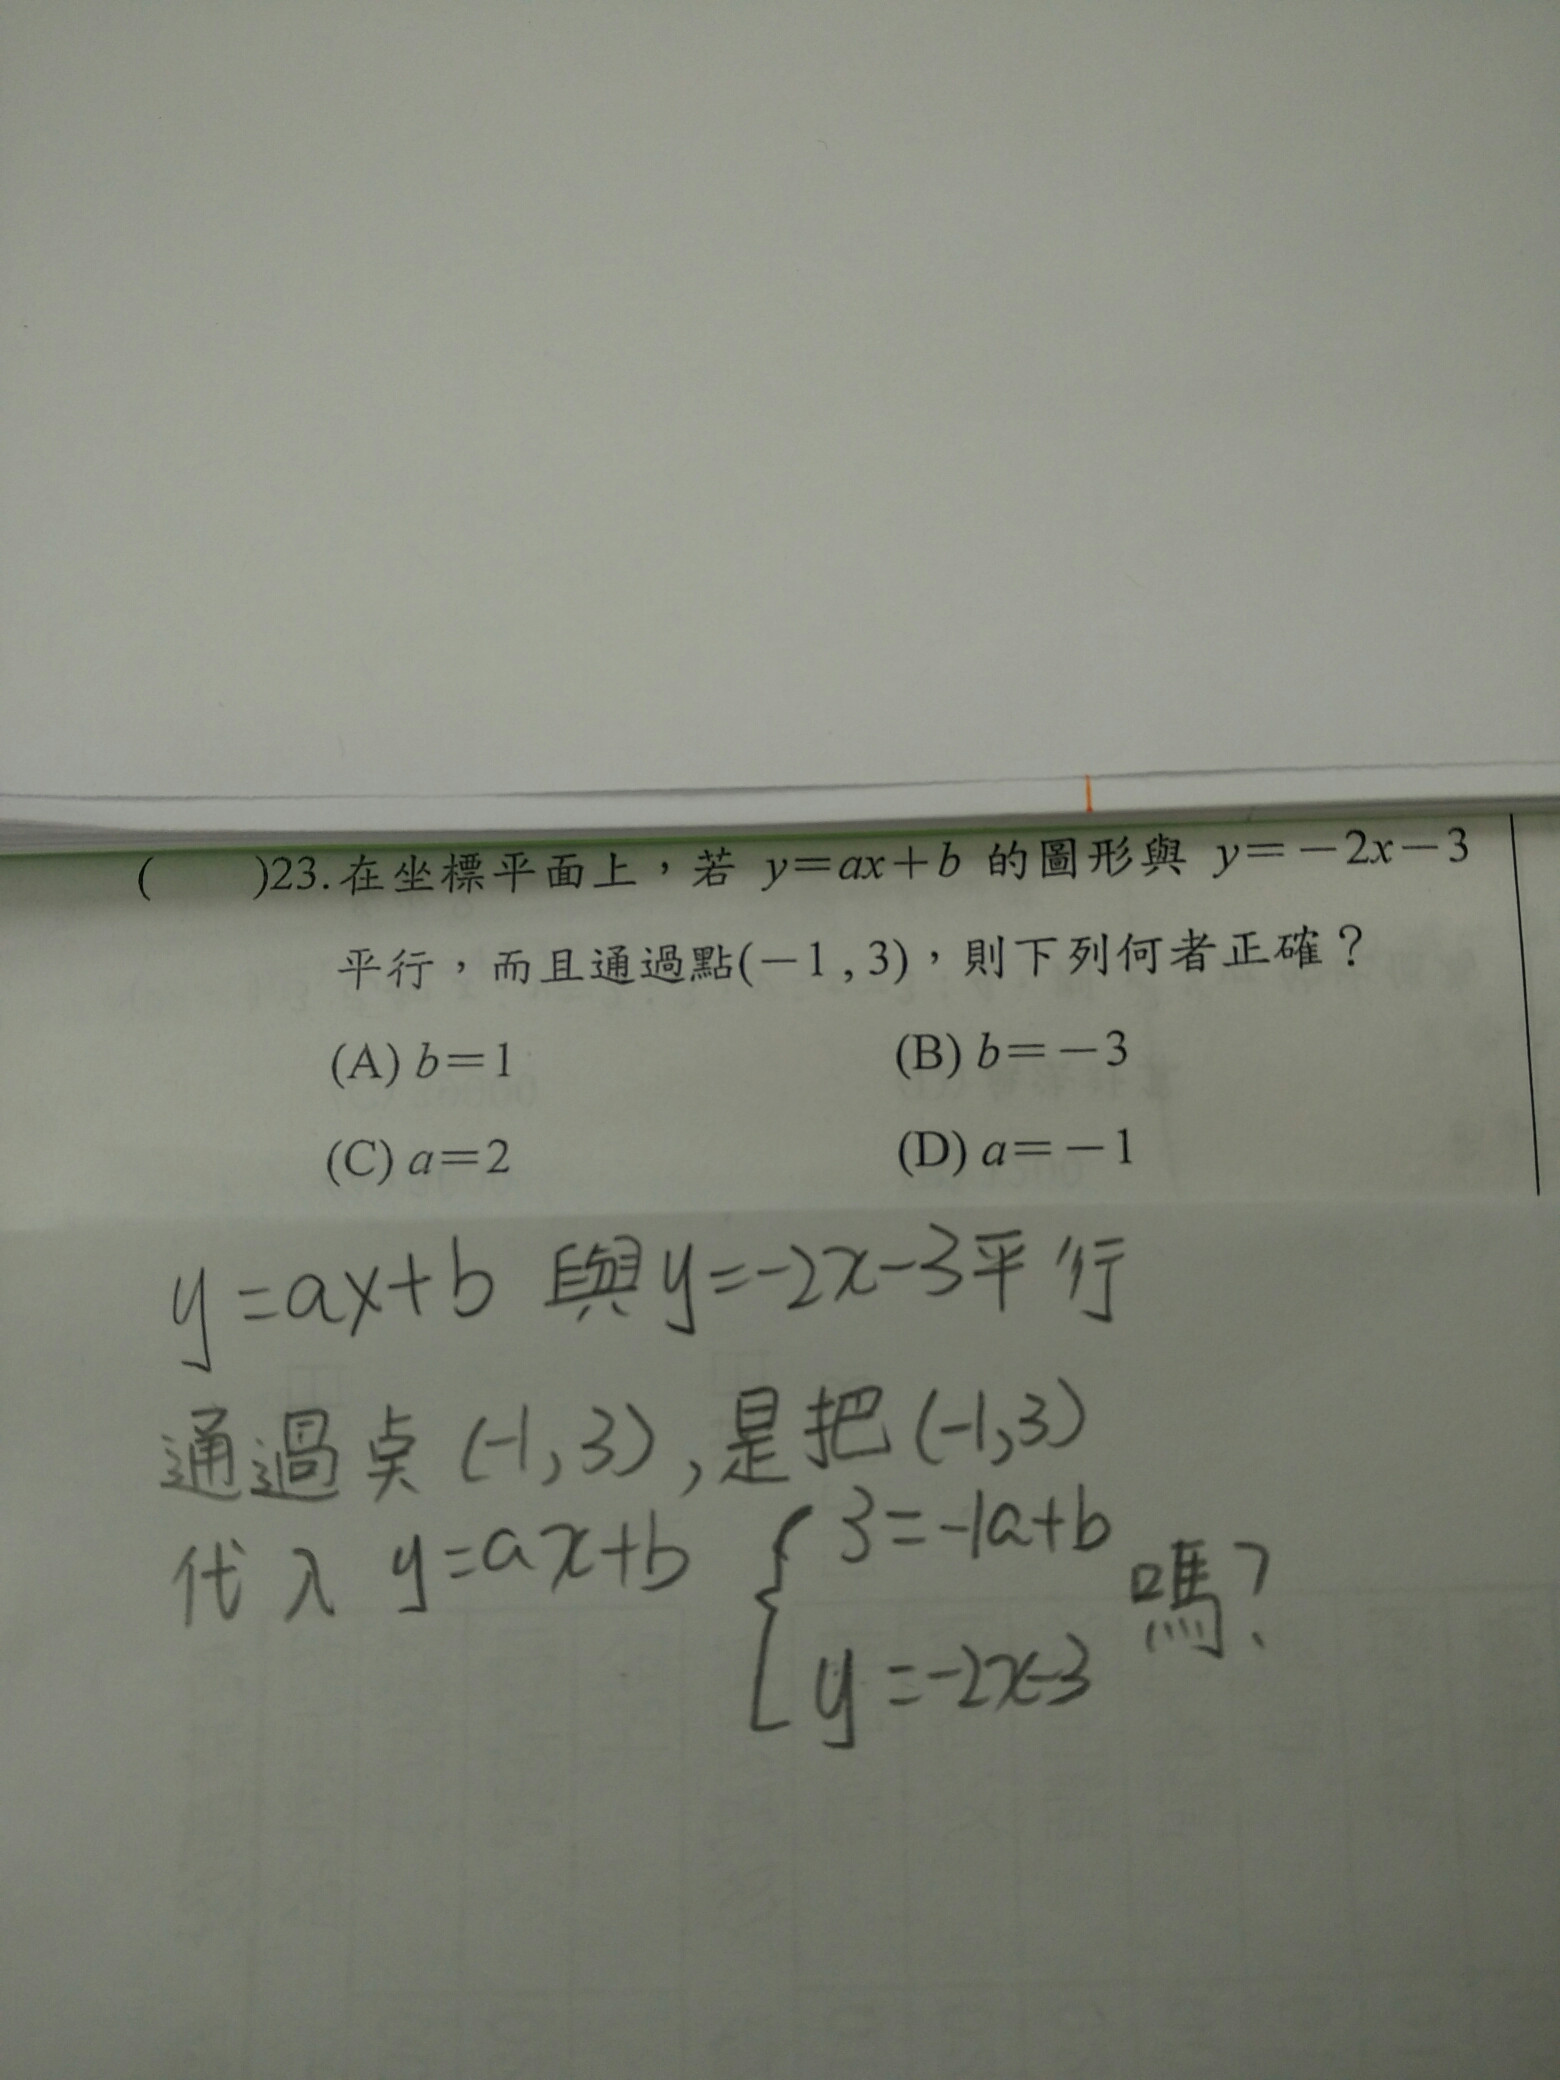 (　　)23.在坐標平面上，若 y=ax+b 的圖形與 y=－2x－3
平行，而且通過點(－1 , 3)，則下列何者正確？
(A) b=1　　(B) b=－3
(C) a=2　　(D) a=－1
y=ax+b 與y=-2x-3平行
通過点(-1,3),是把(-1,3)
代入 y=ax+b { 3=-1a+b 嗎?
y=-2x-3